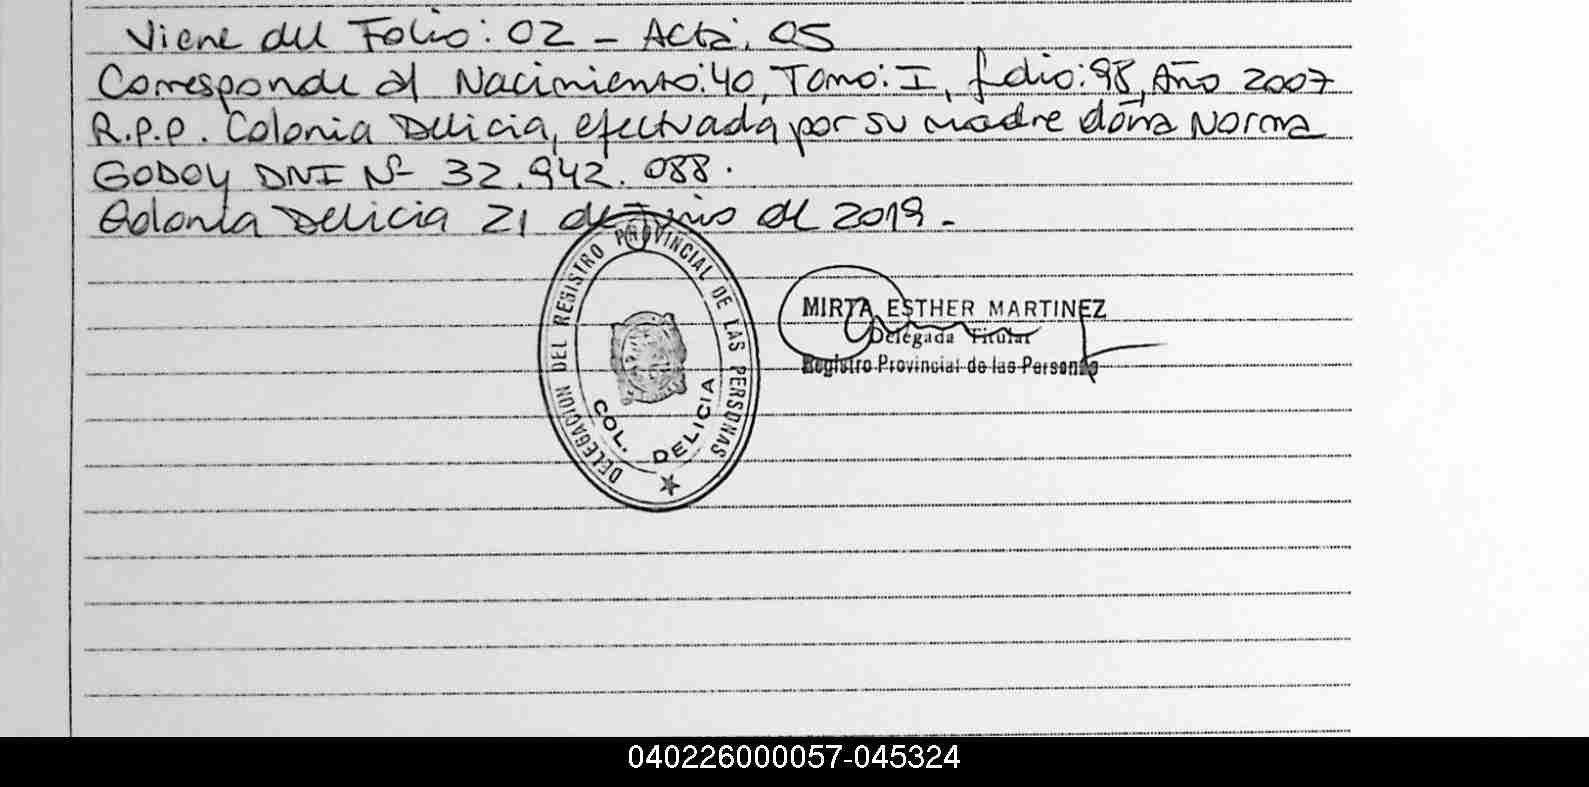 Viene del Folio: 02 - Acta: 05
Corresponde al Nacimiento: 40, Tomo: I, folio: 98, Año 2007
R.P.P. Colonia Delicia, efectuada por su madre doña Norma
GODOY DNI Nº 32.942.088.
Colonia Delicia 21 de Junio de 2019.-
DELEGACION DEL REGISTRO PROVINCIAL DE LAS PERSONAS
COL. DELICIA
MIRTA ESTHER MARTINEZ
Delegada Titular
Registro Provincial de las Personas
040226000057-045324